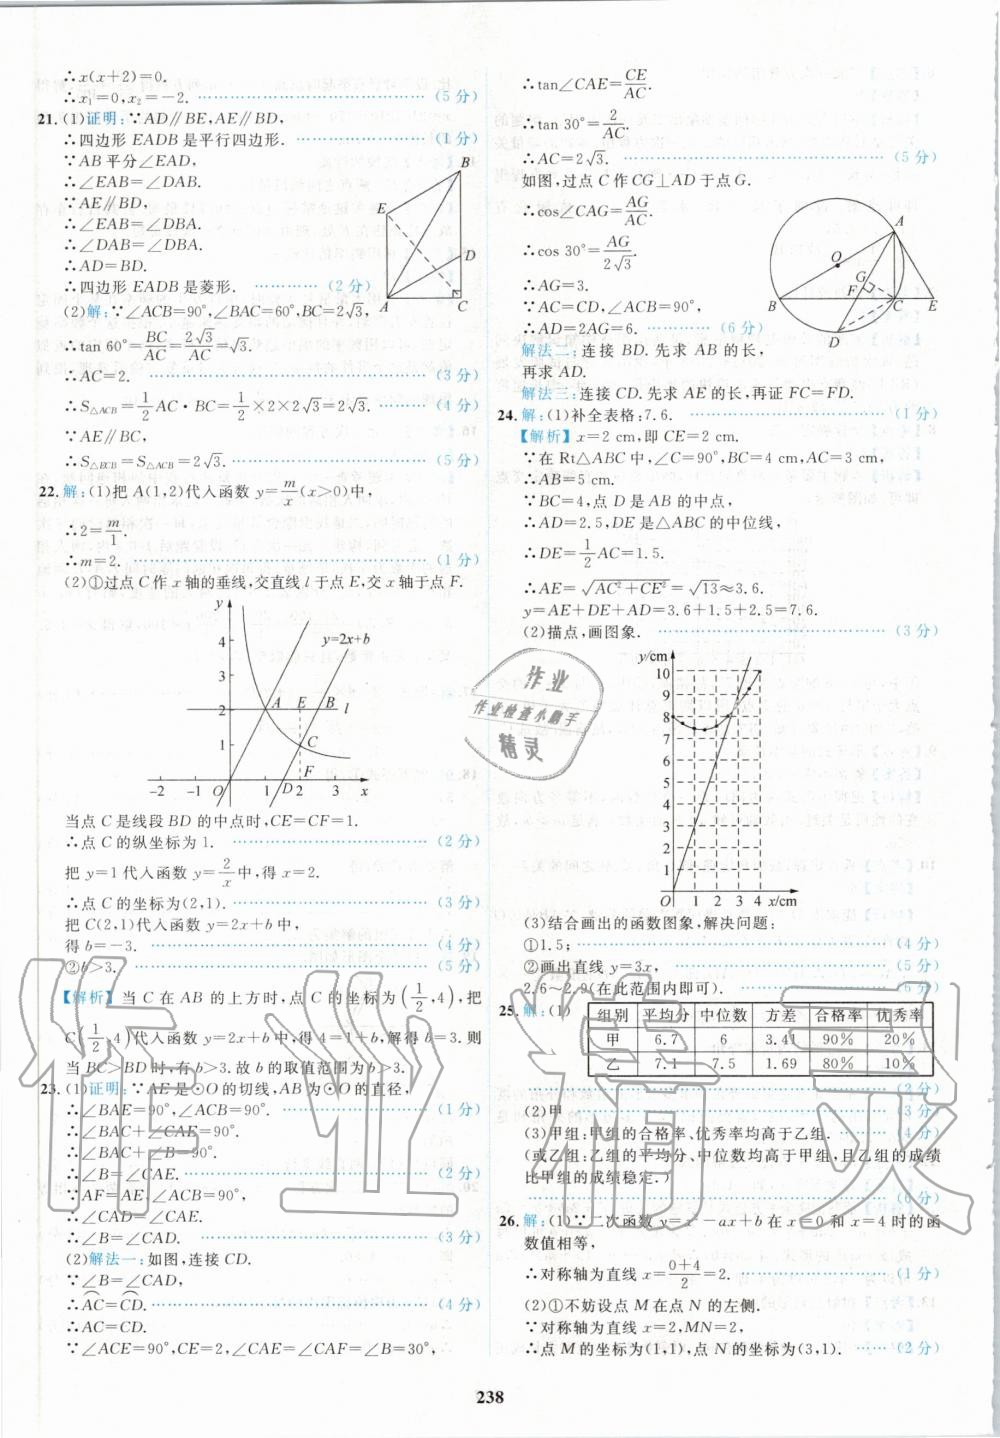 ∴x(x+2)=0.
∴x₁=0,x₂=-2. (5分)
21.(1)证明:∵AD∥BE,AE∥BD,
∴四边形EADB是平行四边形. (1分)
∵AB平分∠EAD,
∴∠EAB=∠DAB.
∵AE∥BD,
∴∠EAB=∠DBA.
∴∠DAB=∠DBA.
∴AD=BD.
∴四边形EADB是菱形. (2分)
B
E
D
A
C
(2)解:∵∠ACB=90°,∠BAC=60°,BC=2√3,
∴tan 60°=BC/AC=2√3/AC=√3.
∴AC=2. (3分)
∴S△ACB=1/2 AC·BC=1/2×2×2√3=2√3. (4分)
∵AE∥BC,
∴S△ECB=S△ACB=2√3. (5分)
22.解:(1)把A(1,2)代入函数y=m/x(x>0)中,
∴2=m/1.
∴m=2. (1分)
(2)①过点C作x轴的垂线,交直线l于点E,交x轴于点F.
y
4
3
2
1
y=2x+b
A E B l
C
F
-2 -1 O 1 D 2 3 x
当点C是线段BD的中点时,CE=CF=1.
∴点C的纵坐标为1. (2分)
把y=1代入函数y=2/x中,得x=2.
∴点C的坐标为(2,1). (3分)
把C(2,1)代入函数y=2x+b中,
得b=-3. (4分)
②b>3. (5分)
【解析】当C在AB的上方时,点C的坐标为(1/2,4),把
C(1/2,4)代入函数y=2x+b中,得4=1+b,解得b=3.则
当BC>BD时,有b>3.故b的取值范围为b>3.
23.(1)证明:∵AE是⊙O的切线,AB为⊙O的直径,
∴∠BAE=90°,∠ACB=90°. (1分)
∴∠BAC+∠CAE=90°.
∴∠BAC+∠B=90°.
∴∠B=∠CAE. (2分)
∵AF=AE,∠ACB=90°,
∴∠CAD=∠CAE.
∴∠B=∠CAD. (3分)
(2)解法一:如图,连接CD.
∵∠B=∠CAD,
∴AC=CD. (4分)
∴AC=CD.
∵∠ACE=90°,CE=2,∠CAE=∠CAF=∠B=30°,
∴tan∠CAE=CE/AC.
∴tan 30°=2/AC.
∴AC=2√3. (5分)
如图,过点C作CG⊥AD于点G.
∴cos∠CAG=AG/AC.
∴cos 30°=AG/2√3.
∴AG=3.
∵AC=CD,∠ACB=90°,
∴AD=2AG=6. (6分)
A
O
G
F
B
C
E
D
解法二:连接BD.先求AB的长,
再求AD.
解法三:连接CD.先求AE的长,再证FC=FD.
24.解:(1)补全表格:7.6. (1分)
【解析】x=2 cm,即CE=2 cm.
∵在Rt△ABC中,∠C=90°,BC=4 cm,AC=3 cm,
∴AB=5 cm.
∵BC=4,点D是AB的中点,
∴AD=2.5,DE是△ABC的中位线,
∴DE=1/2 AC=1.5.
∴AE=√AC²+CE²=√13≈3.6.
y=AE+DE+AD=3.6+1.5+2.5=7.6.
(2)描点,画图象. (3分)
y/cm
10
9
8
7
6
5
4
3
2
1
O 1 2 3 4 x/cm
(3)结合画出的函数图象,解决问题:
①1.5; (4分)
②画出直线y=3x, (5分)
2.6~2.9(在此范围内即可). (6分)
25.解:(1)
组别 平均分 中位数 方差 合格率 优秀率
甲 6.7 6 3.41 90% 20%
乙 7.1 7.5 1.69 80% 10%
(2分)
(2)甲 (3分)
(3)甲组:甲组的合格率、优秀率均高于乙组. (4分)
(或乙组:乙组的平均分、中位数均高于甲组,且乙组的成绩
比甲组的成绩稳定.)
(6分)
26.解:(1)∵二次函数y=x²-ax+b在x=0和x=4时的函
数值相等,
∴对称轴为直线x=0+4/2=2. (1分)
(2)①不妨设点M在点N的左侧.
∵对称轴为直线x=2,MN=2,
∴点M的坐标为(1,1),点N的坐标为(3,1). (2分)
作业
作业检查小助手
精灵
作业精灵
238